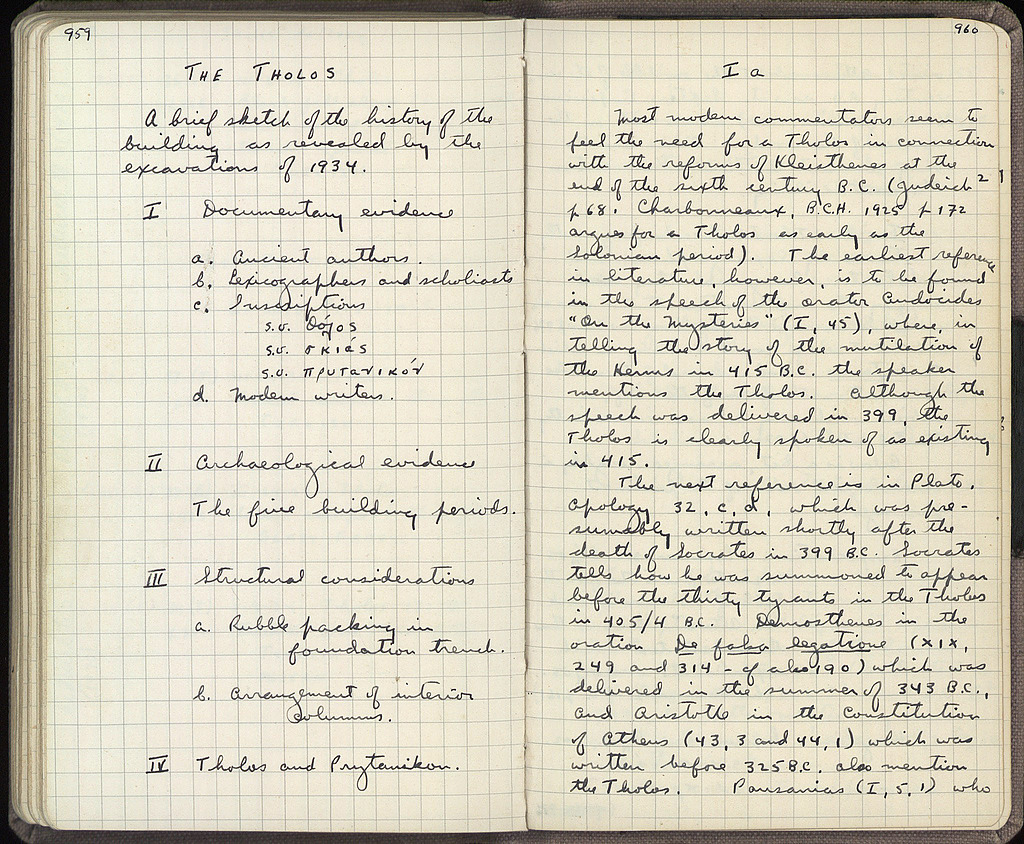 959
THE THOLOS
A brief sketch of the history of the
building as revealed by the
excavations of 1934.
I Documentary evidence
a. Ancient authors.
b. Lexicographers and scholiasts
c. Inscriptions
s.v. θόλος
s.v. σκιάς
s.v. πρυτανικόν
d. Modern writers.
II Archaeological evidence
The five building periods.
III Structural considerations
a. Rubble packing in
foundation trench.
b. Arrangement of interior
columns.
IV Tholos and Prytanikon.
960
I a
Most modern commentators seem to
feel the need for a Tholos in connection
with the reforms of Kleisthenes at the
end of the sixth century B.C. (Judeich²
p 68. Charbonneaux, B.C.H. 1925 p 172
argues for a Tholos as early as the
Solonian period). The earliest reference
in literature, however, is to be found
in the speech of the orator Andocides
"On the Mysteries" (I, 45), where, in
telling the story of the mutilation of
the Herms in 415 B.C. the speaker
mentions the Tholos. Although the
speech was delivered in 399, the
Tholos is clearly spoken of as existing
in 415.
The next reference is in Plato,
Apology 32, c, d, which was pre-
sumably written shortly after the
death of Socrates in 399 B.C. Socrates
tells how he was summoned to appear
before the thirty tyrants in the Tholos
in 405/4 B.C. Demosthenes in the
oration De falsa legatione (XIX,
249 and 314 - cf also 190) which was
delivered in the summer of 343 B.C.,
and Aristotle in the Constitution
of Athens (43, 3 and 44, 1) which was
written before 325 B.C. also mention
the Tholos. Pausanias (I, 5, 1) who